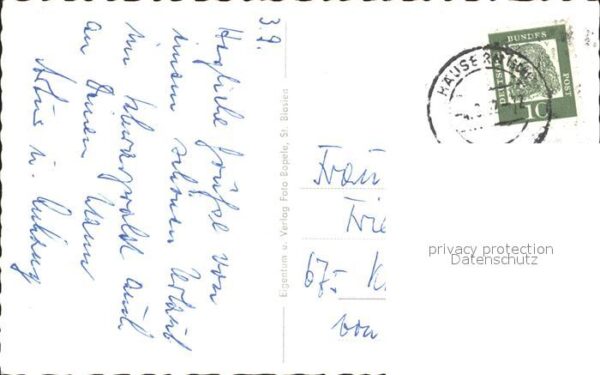 3.9.
Herzliche Grüße von
einem schönen Urlaub
im Schwarzwald auch
an Deinen Mann
Eigentum u. Verlag Foto Bopele, St. Blasien
DEUTSCHE BUNDES POST
10
HÄUSERN
Frau
Frie
67
von
privacy protection
Datenschutz